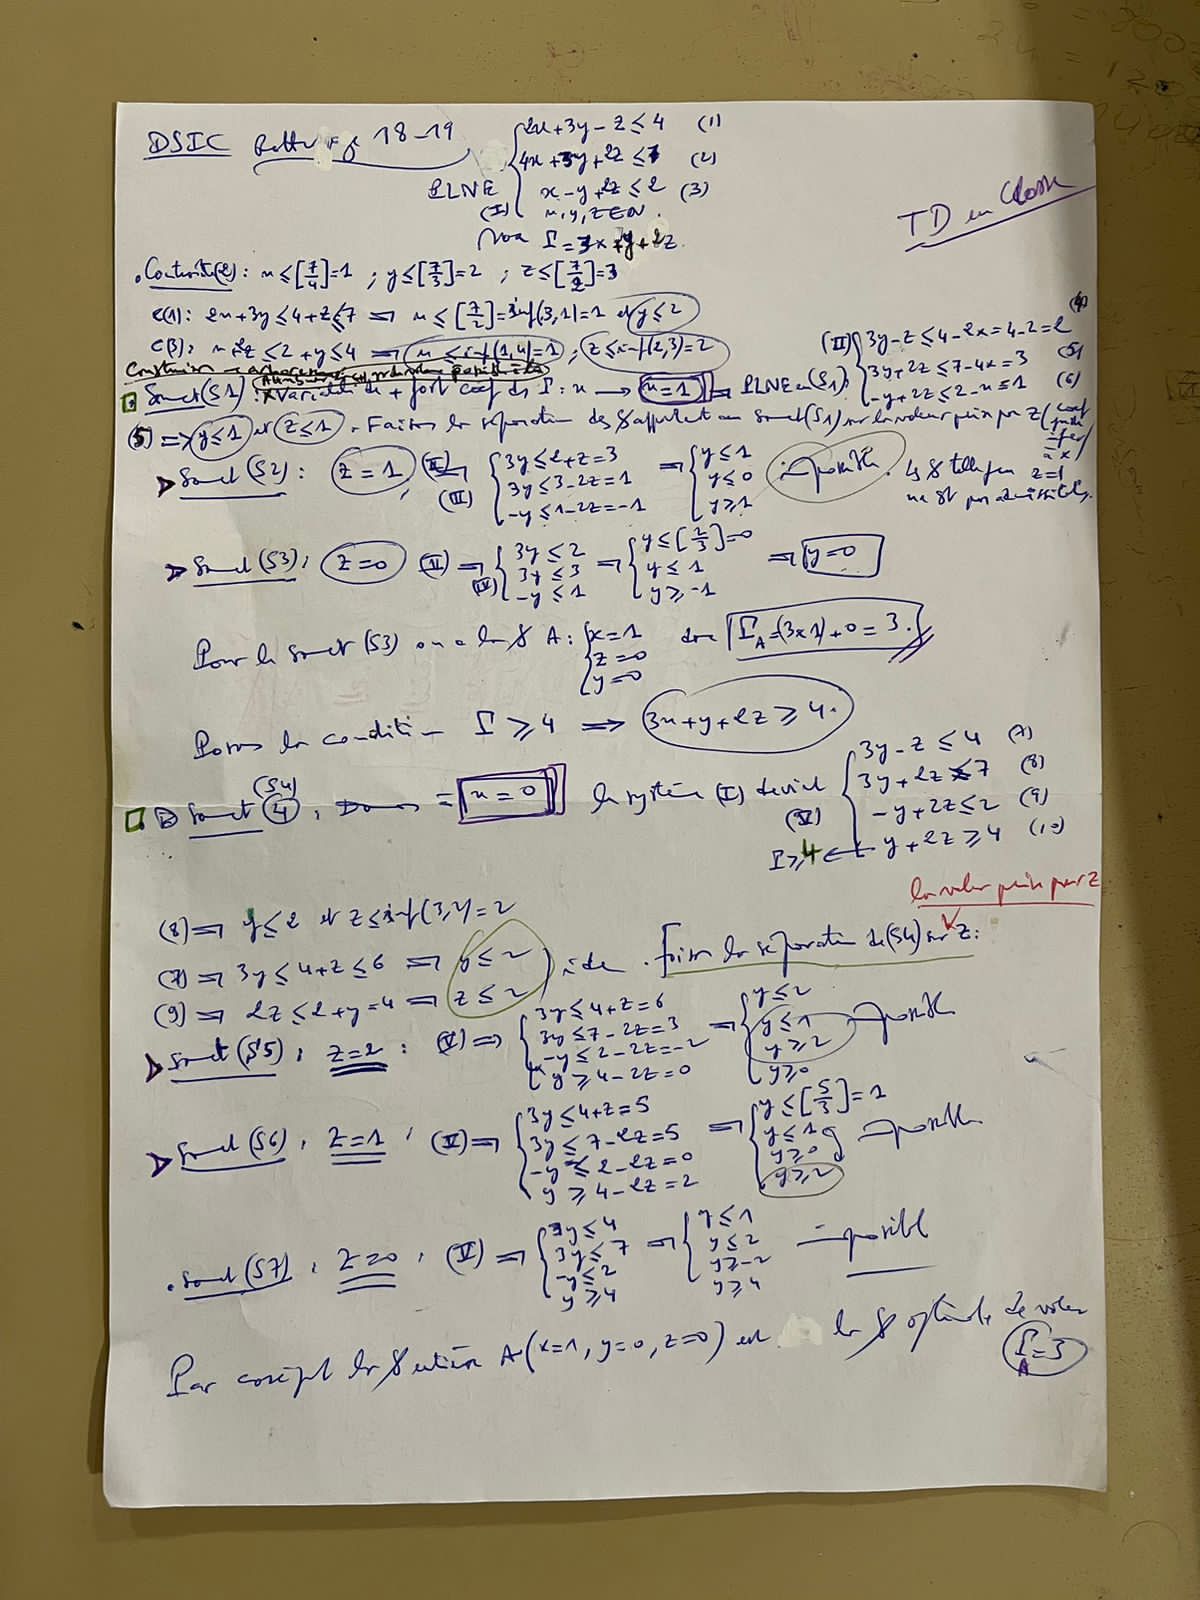 DSIC 18-19
PLNE (I) { 2x+3y-z≤4 (1)
4x+3y+2z≤7 (2)
x-y+2z≤2 (3)
x,y,z∈N.
Max I=3x+y+2z
TD en classe
. Contrainte(2): x≤[7/4]=1 ; y≤[7/3]=2 ; z≤[7/2]=3
C(1): 2x+3y≤4+z≤7 ⇒ x≤[7/2]=inf(3,1)=1 et y≤2
C(3): x+2z≤2+y≤4 ⇒ x≤inf(1,4)=1 , z≤inf(2,3)=2
Sommet(S1): Variable de + fort coef de I: x → x=1 ⇒ PLNE en(S1):
(II) { 3y-z≤4-2x=4-2=2 (4)
3y+2z≤7-4x=3 (5)
-y+2z≤2-x≤1 (6)
(5) ⇒ y≤1 et z≤1. Faisons la séparation des S appartenant au sommet(S1) sur la valeur prise par z
▶ Sommet(S2): z=1, (II) ⇒
(III) { 3y≤2+z=3
3y≤3-2z=1
-y≤1-2z=-1
⇒ { y≤1
y≤0
y≥1
impossible. Les S telles que z=1
ne st pas admissibles.
▶ Sommet(S3): z=0 (II) ⇒
(IV) { 3y≤2
3y≤3
-y≤1
⇒ { y≤[2/3]=0
y≤1
y≥-1
⇒ y=0
Pour le sommet (S3) on a la S A: { x=1
z=0
y=0
donc I_A=(3x1)+0=3.
Posons la condition I≥4 ⇒ 3x+y+2z≥4.
(S4)
Sommet 4, = x=0 le système (I) devient
(V) { 3y-z≤4 (7)
3y+2z≤7 (8)
-y+2z≤2 (9)
I≥4 ← y+2z≥4 (10)
la valeur prise par z
(8) ⇒ y≤2 et z≤inf(3,2)=2
(7) ⇒ 3y≤4+z≤6 ⇒ y≤2
(9) ⇒ 2z≤2+y=4 ⇒ z≤2
. Faisons la séparation de(S4) sur z:
▶ Sommet(S5): z=2 : (V) ⇒ { 3y≤4+z=6
3y≤7-2z=3
-y≤2-2z=-2
y≥4-2z=0
⇒ { y≤2
y≤1
y≥2
y≥0
impossible
▶ Sommet(S6), z=1, (V) ⇒ { 3y≤4+z=5
3y≤7-2z=5
-y≤2-2z=0
y≥4-2z=2
⇒ { y≤[5/3]=1
y≤1
y≥0
y≥2
impossible
. Sommet(S7), z=0, (V) ⇒ { 3y≤4
3y≤7
-y≤2
y≥4
⇒ { y≤1
y≤2
y≥-2
y≥4
impossible
Par conséquent la solution A(x=1, y=0, z=0) est la S optimale de valeur
I_A=3